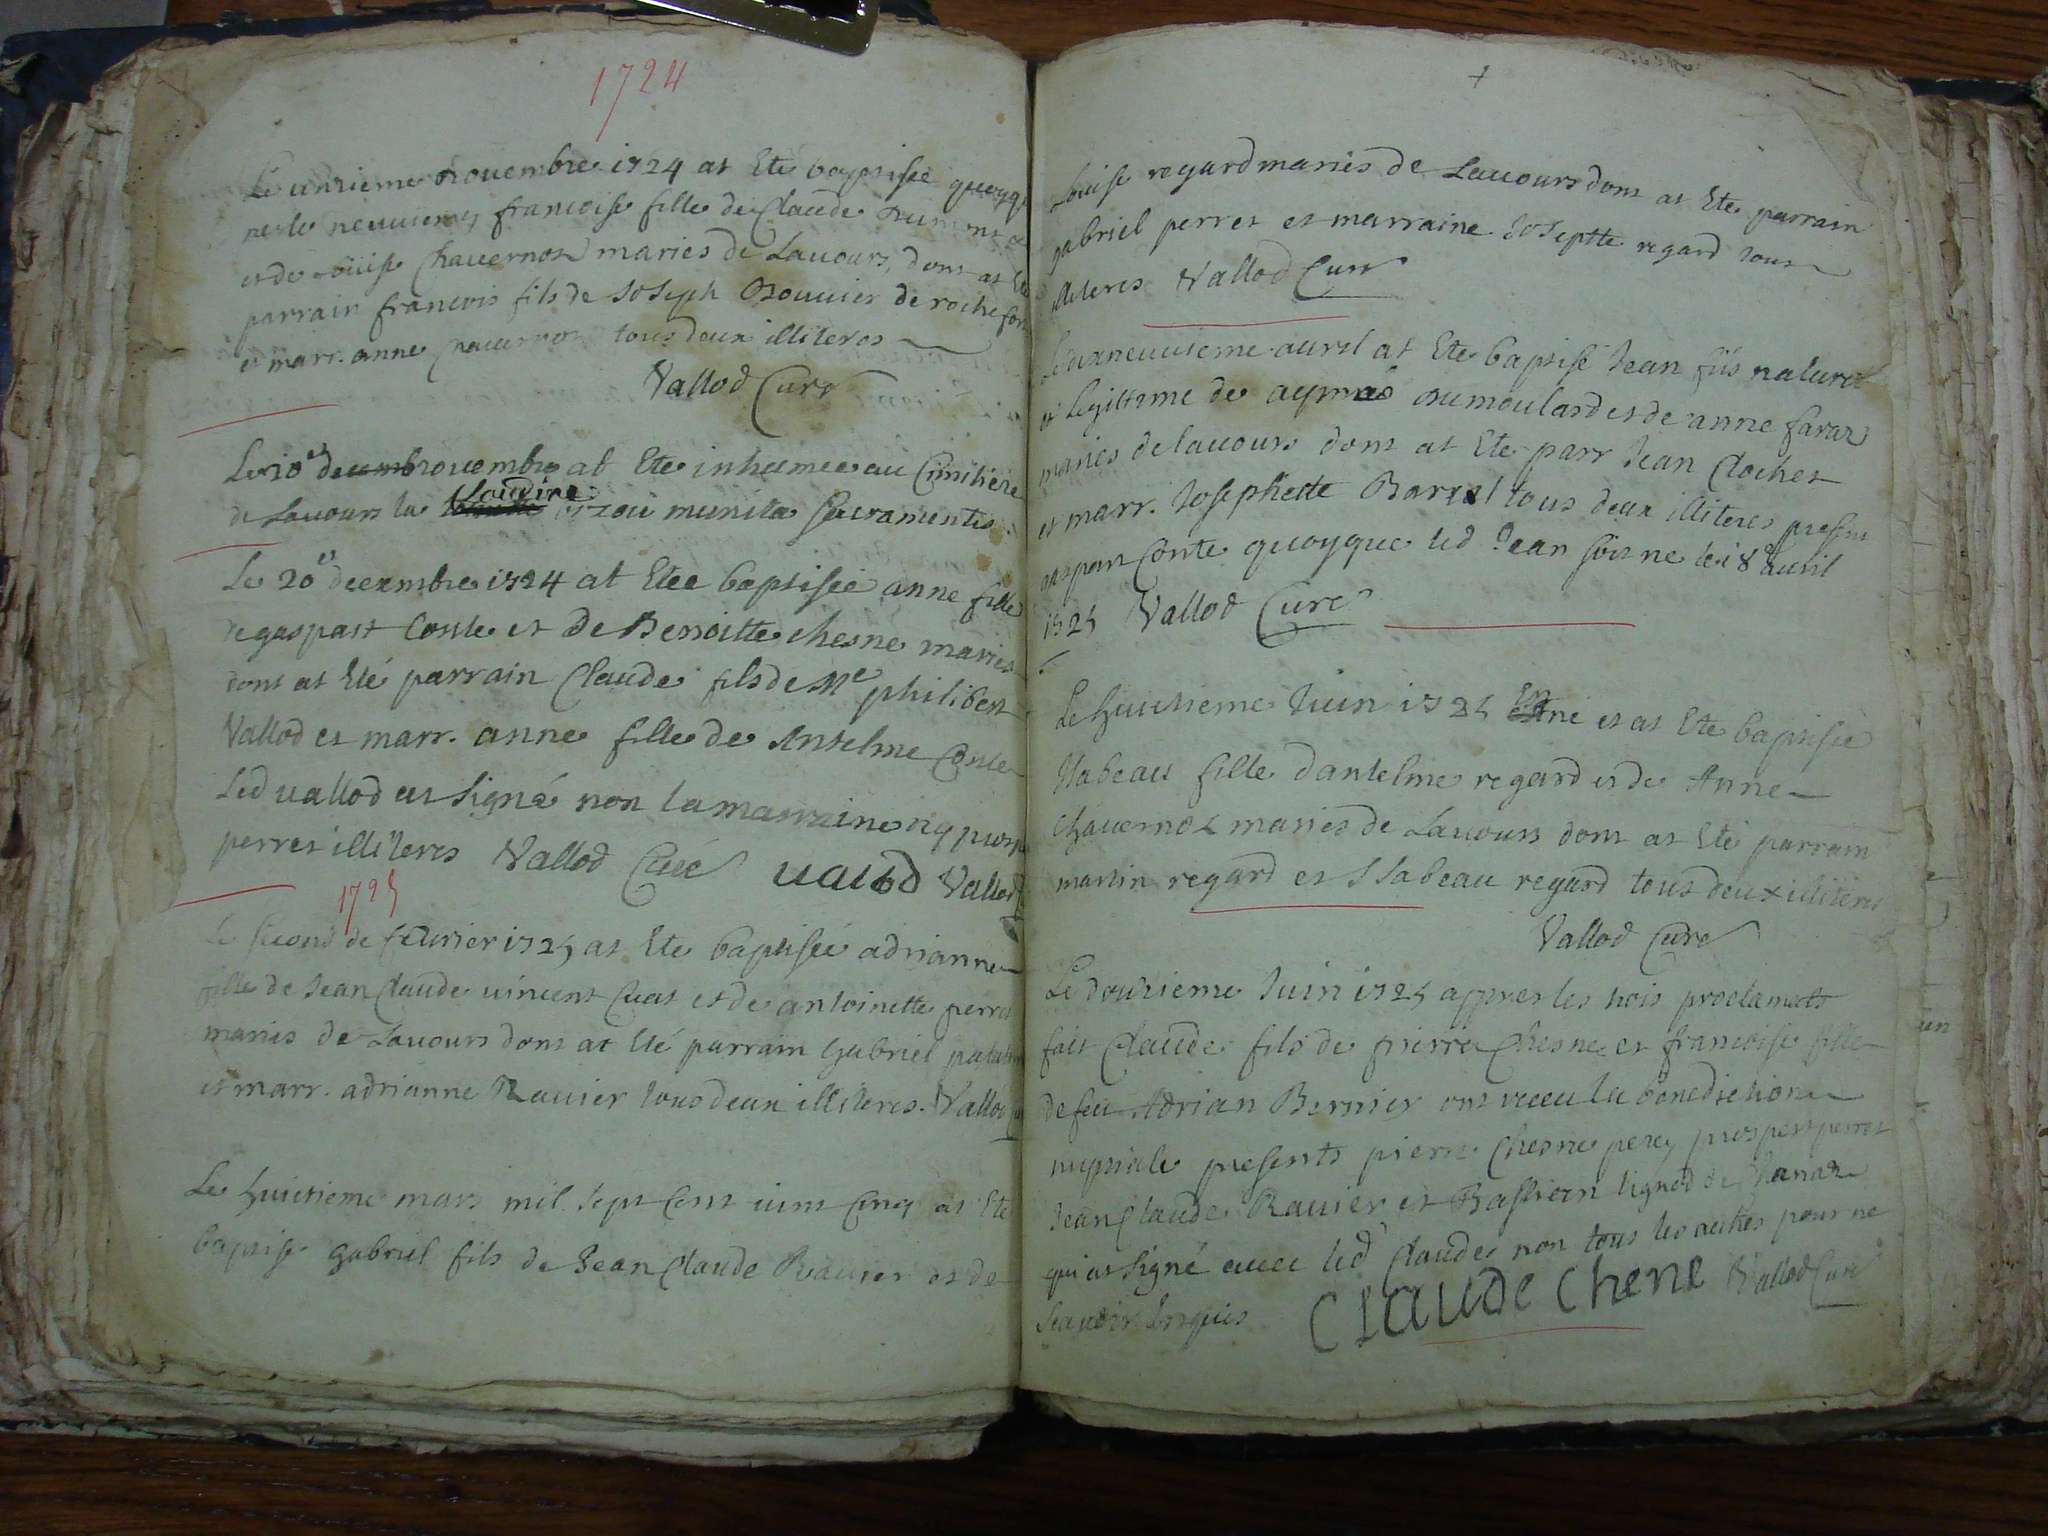 1724
Le unzieme novembre 1724 at Ete baptisée quoyqu
née le neuviemes francoise fille de Claude Dumont
et de Louise Chavernon maries de Lavours, dont at Ete
parrain francois fils de Joseph Bouvier de rochefort
et marr. anne chavernon tous deux illiteres
Vallod Curé
Le 10e novembre at Ete inhumee au Cimitiere
de Lavours la Loudine munita Sacramentis.
Le 20e decembre 1724 at Etee baptisée anne fille
de gaspart Conte et de Benoitte chesne maries
dont at Eté parrain Claude fils de Me philibert
Vallod et marr. anne fille de Antelme Conte
Led vallod at signé non la marraine ny prosp
perret illiteres Vallod Curé vallod Vallod
1725
Le second de fevrier 1725 at Ete baptisée adrianne
fille de Jean Claude vincent Cuat et de antoinette perret
maries de Lavours dont at Eté parrain gabriel
et marr. adrianne Ravier tous deux illiteres. Vallod
Le huitieme mars mil sept Cent vint Cinq at Ete
baptisé gabriel fils de Jean Claude Ravier et de
Louise regard maries de Lavours dont at Ete parrain
gabriel perret et marraine Joseptte regard tous
illiteres Vallod Curé
Le dixneuvieme avril at Ete baptisé Jean fils naturel
et Legittime de aymé Dumoulard et de anne favre
maries de lavours dont at Ete parr Jean Clochet
et marr. Josephette Barral tous deux illiteres present
gaspar Conte quoyque led Jean soit ne le 18e avril
1725 Vallod Curé
Le huitieme Juin 1725 Est né et at Ete baptisée
Isabeau fille dantelme regard et de Anne
chavernon maries de Lavours dont at Eté parrain
martin regard et Isabeau regard tous deux illiteres
Vallod Curé
Le douzieme Juin 1725 appres les trois proclamats
fait Claude fils de pierre Chesne et francoise fille
de feu Adrian Bernier ont receu la benediction
nuptiale presents pierre Chesne perey prosper perret
Jean Claude Ravier et Bastian lignod de Chanaz
qui at signé avec led Claude non tous les autres pour ne
scavoir Enquis Claude Chene Vallod Curé